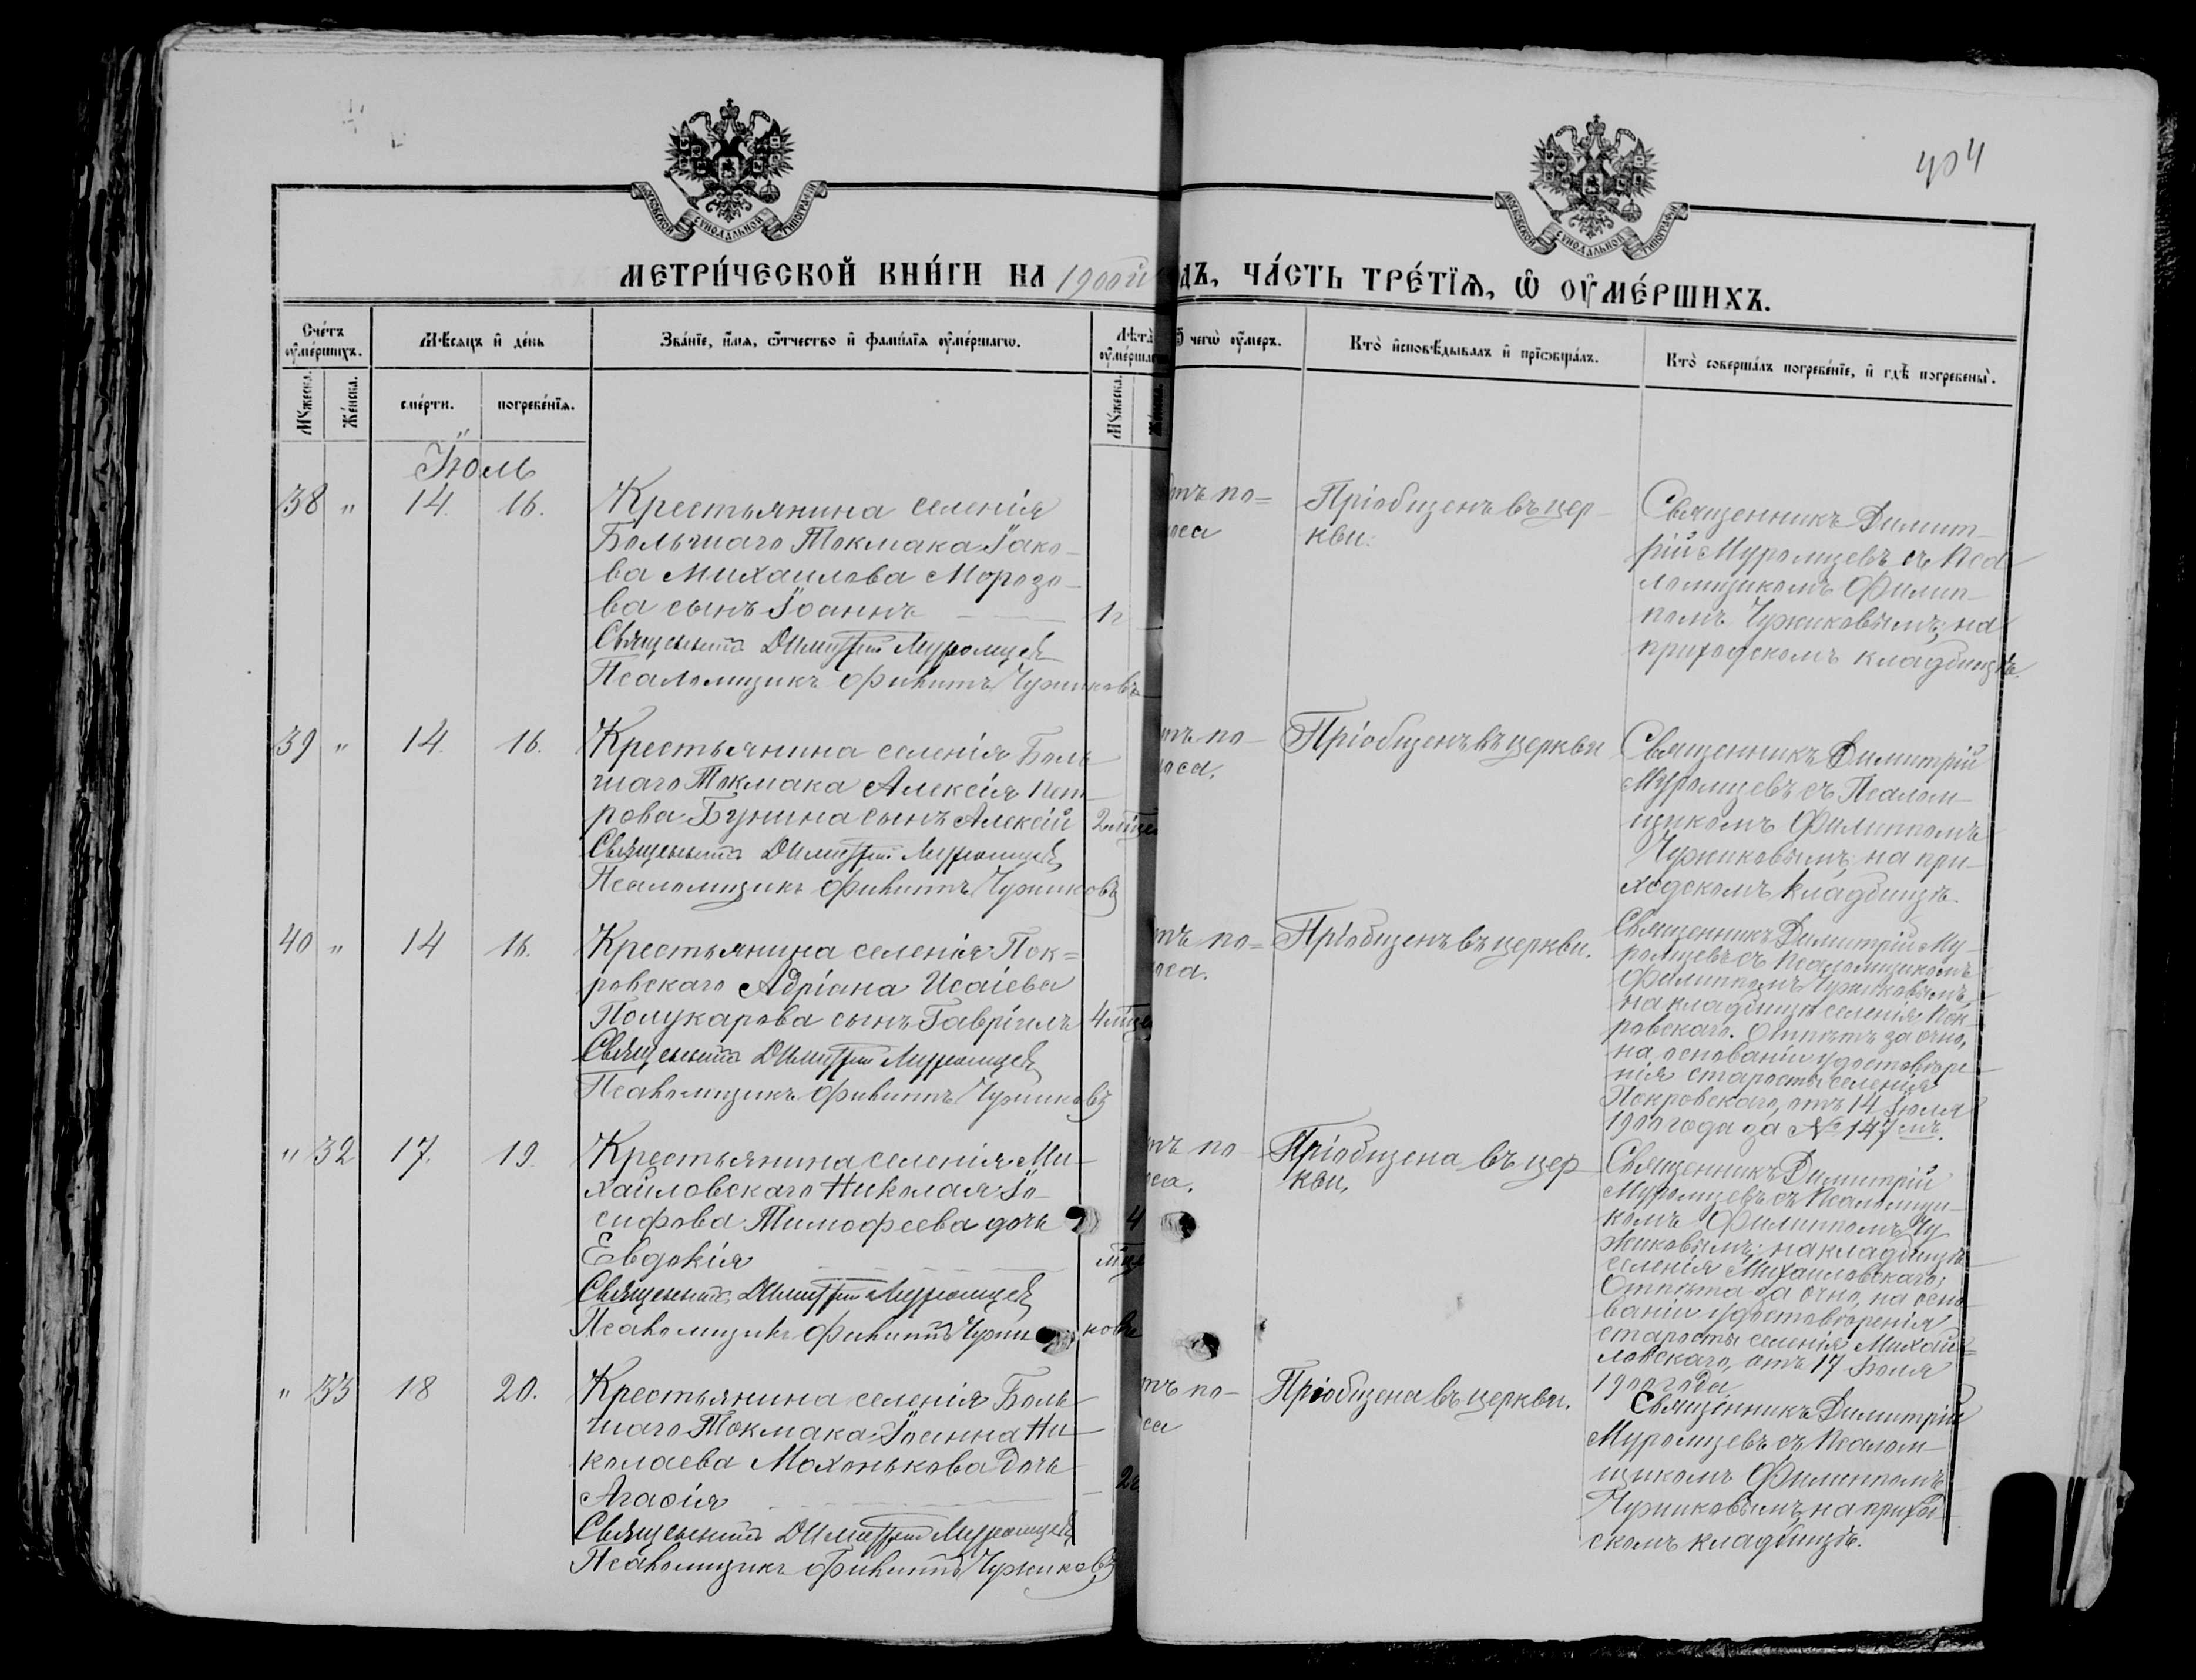 404
МОСКОВСКОЙ СУНОДАЛЬНОЙ ТИПОГРАФІИ
МОСКОВСКОЙ СУНОДАЛЬНОЙ ТИПОГРАФІИ
МЕТРИ́ЧЕСКОЙ КНИ́ГИ НА 1900й
дъ, ЧА́СТЬ ТРЕ́ТЇѦ, Ѡ҆ ОУ҆МЕ́РШИХЪ.
Сче́тъ оу҆ме́ршихъ.
Мѣ́сяцъ и҆ де́нь
Зва́нїе, и҆́мя, ѻ҆́тчество и҆ фами́лїя оу҆ме́ршагѡ.
Лѣ́та оу҆ме́ршаг
чегѡ̀ оу҆́меръ.
Кто̀ и҆сповѣ́дывалъ и҆ прїѻбща́лъ.
Кто̀ соверша́лъ погребе́нїе, и҆ гдѣ̀ погребены̀.
Мꙋ́жеска.
Же́нска.
сме́рти.
погребе́нїя.
Мꙋ́жеска.
Іюль
38 " 14. 16.
Крестьянина селенія
Большаго Токмака Іако-
ва Михаилова Морозо-
ва сынъ Іоаннъ
1г
Священникъ Димитрій Муромцевъ
Псаломщикъ Филиппъ Чужиковъ
тъ по=
носа
Пріобщенъ въ цер-
кви.
Священникъ Димит-
рій Муромцевъ съ Пса-
ломщикомъ Филип-
помъ Чужиковымъ; на
приходскомъ кладбищѣ.
39 " 14. 16.
Крестьянина селенія Боль-
шаго Токмака Алексія Пет-
рова Бунина сынъ Алексій
2 мѣся
Священникъ Димитрій Муромцевъ
Псаломщикъ Филиппъ Чужиковъ
тъ по-
носа.
Пріобщенъ въ церкви
Священникъ Димитрій
Муромцевъ съ Псалом-
щикомъ Филиппомъ
Чужиковымъ; на при-
ходскомъ кладбищѣ.
40 " 14 16.
Крестьянина селенія Пок=
ровскаго Адріана Исаіева
Полукарова сынъ Гавріилъ
Священникъ Димитрій Муромцевъ
Псаломщикъ Филиппъ Чужиковъ
тъ по=
носа.
Пріобщенъ въ церкви.
Священникъ Димитрій Му-
ромцевъ съ Псаломщикомъ
Филиппомъ Чужиковымъ,
на кладбищѣ селенія Пок-
ровскаго. Отпѣтъ за очно,
на основаніи удостовѣре-
нія старосты селенія
Покровскаго, отъ 14 Іюля
1900 года за № 147мъ.
" 32 17. 19.
Крестьянина селенія Ми-
хайловскаго Николая Іо-
сифова Тимофеева дочь
4
Евдокія
Священникъ Димитрій Муромцевъ
Псаломщикъ Филиппъ Чужиковъ
тъ по-
са.
Пріобщена въ цер-
кви,
Священникъ Димитрій
Муромцевъ съ Псаломщи-
комъ Филиппомъ Чу-
жиковымъ; на кладбищѣ
селенія Михайловскаго;
Отпѣта за очно, на осно-
ваніи удостовѣренія
старосты селенія Михай=
ловскаго, отъ 17 Іюля
1900 года
" 33 18 20.
Крестьянина селенія Боль-
шаго Токмака Іоанна Ни-
колаева Мохонькова дочь
Агафія
2г
Священникъ Димитрій Муромцевъ
Псаломщикъ Филиппъ Чужиковъ
тъ по-
са
Пріобщена въ церкви.
Священникъ Димитрій
Муромцевъ съ Псалом-
щикомъ Филиппомъ
Чужиковымъ, на приход-
скомъ кладбищѣ.